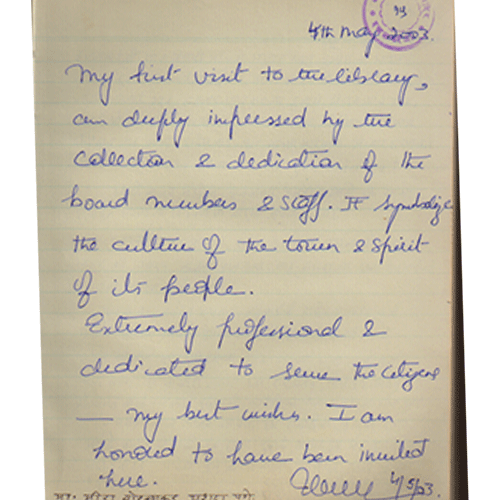 4th May 2003.
My first visit to the library,
am deeply impressed by the
collection & dedication of the
board members & staff. It symbolize
the culture of the town & spirit
of its people.
Extremely professional &
dedicated to serve the citizens
— my best wishes. I am
honored to have been invited
here. 4/5/03